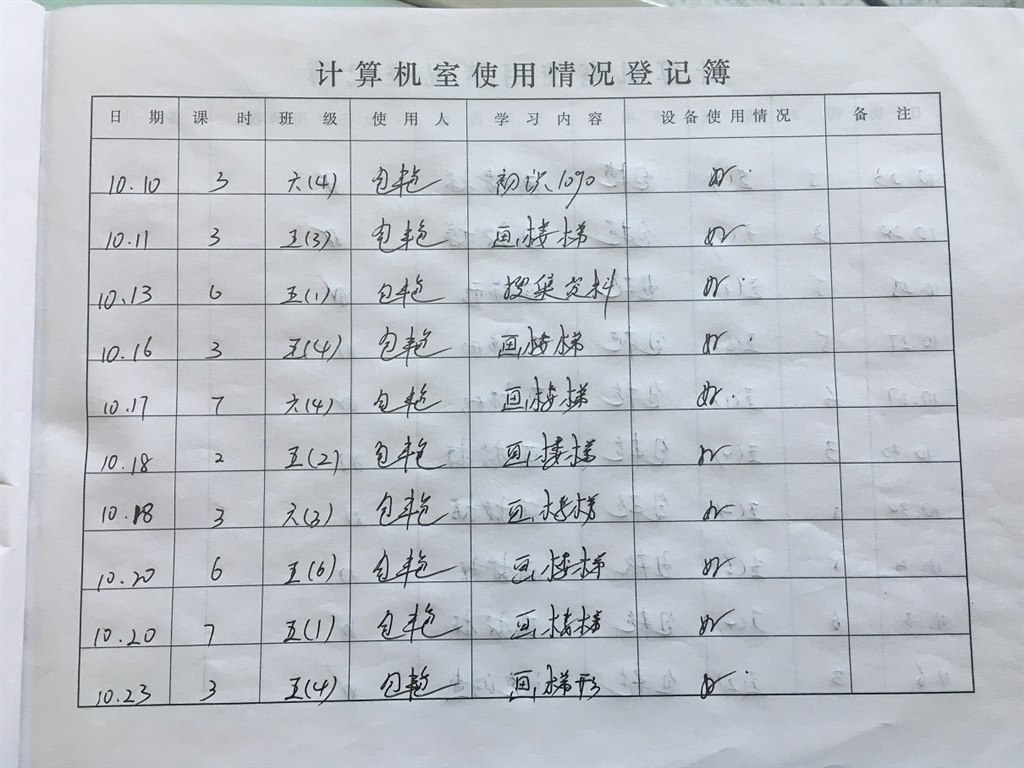 计算机室使用情况登记簿
日期 课时 班级 使用人 学习内容 设备使用情况 备注
10.10 3 六(4) 包艳 初识logo 好.
10.11 3 五(3) 包艳 画楼梯 好.
10.13 6 五(1) 包艳 搜集资料 好.
10.16 3 五(4) 包艳 画楼梯 好.
10.17 7 六(4) 包艳 画楼梯 好.
10.18 2 五(2) 包艳 画楼梯 好.
10.18 3 六(3) 包艳 画楼梯 好.
10.20 6 五(6) 包艳 画楼梯 好.
10.20 7 五(1) 包艳 画楼梯 好
10.23 3 五(4) 包艳 画梯形 好.